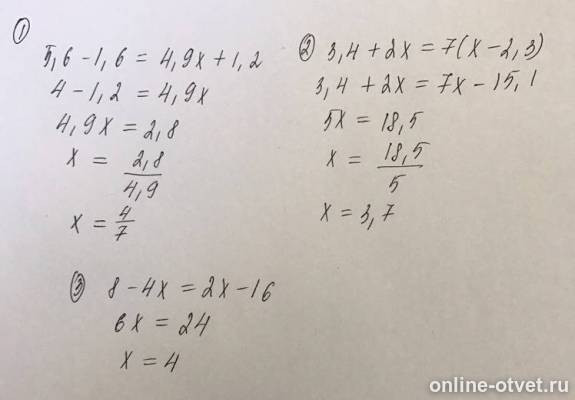 ①
5,6 - 1,6 = 4,9x + 1,2
4 - 1,2 = 4,9x
4,9x = 2,8
x = 2,8/4,9
x = 4/7
② 3,4 + 2x = 7(x - 2,3)
3,4 + 2x = 7x - 15,1
5x = 18,5
x = 18,5/5
x = 3,7
③ 8 - 4x = 2x - 16
6x = 24
x = 4
online-otvet.ru